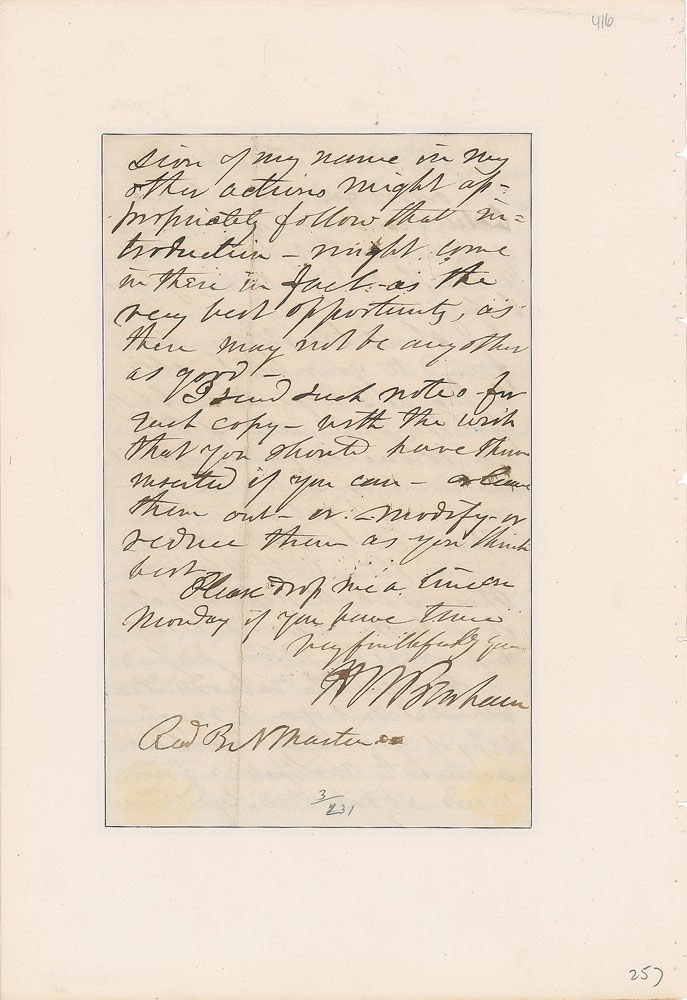 416
sion of my name in my
other actions might ap-
propriately follow that in-
troduction - might come
in there in fact - as the
very best opportunity, as
there may not be any other
as good -
I send such notes for
each copy - with the wish
that you should have them
inserted if you can - or leave
them out - or - modify - or
reduce them as you think
best.
Please drop me a line on
Monday if you have time
very faithfully yours
H W Benham
Rev B N Martin
3/231
257